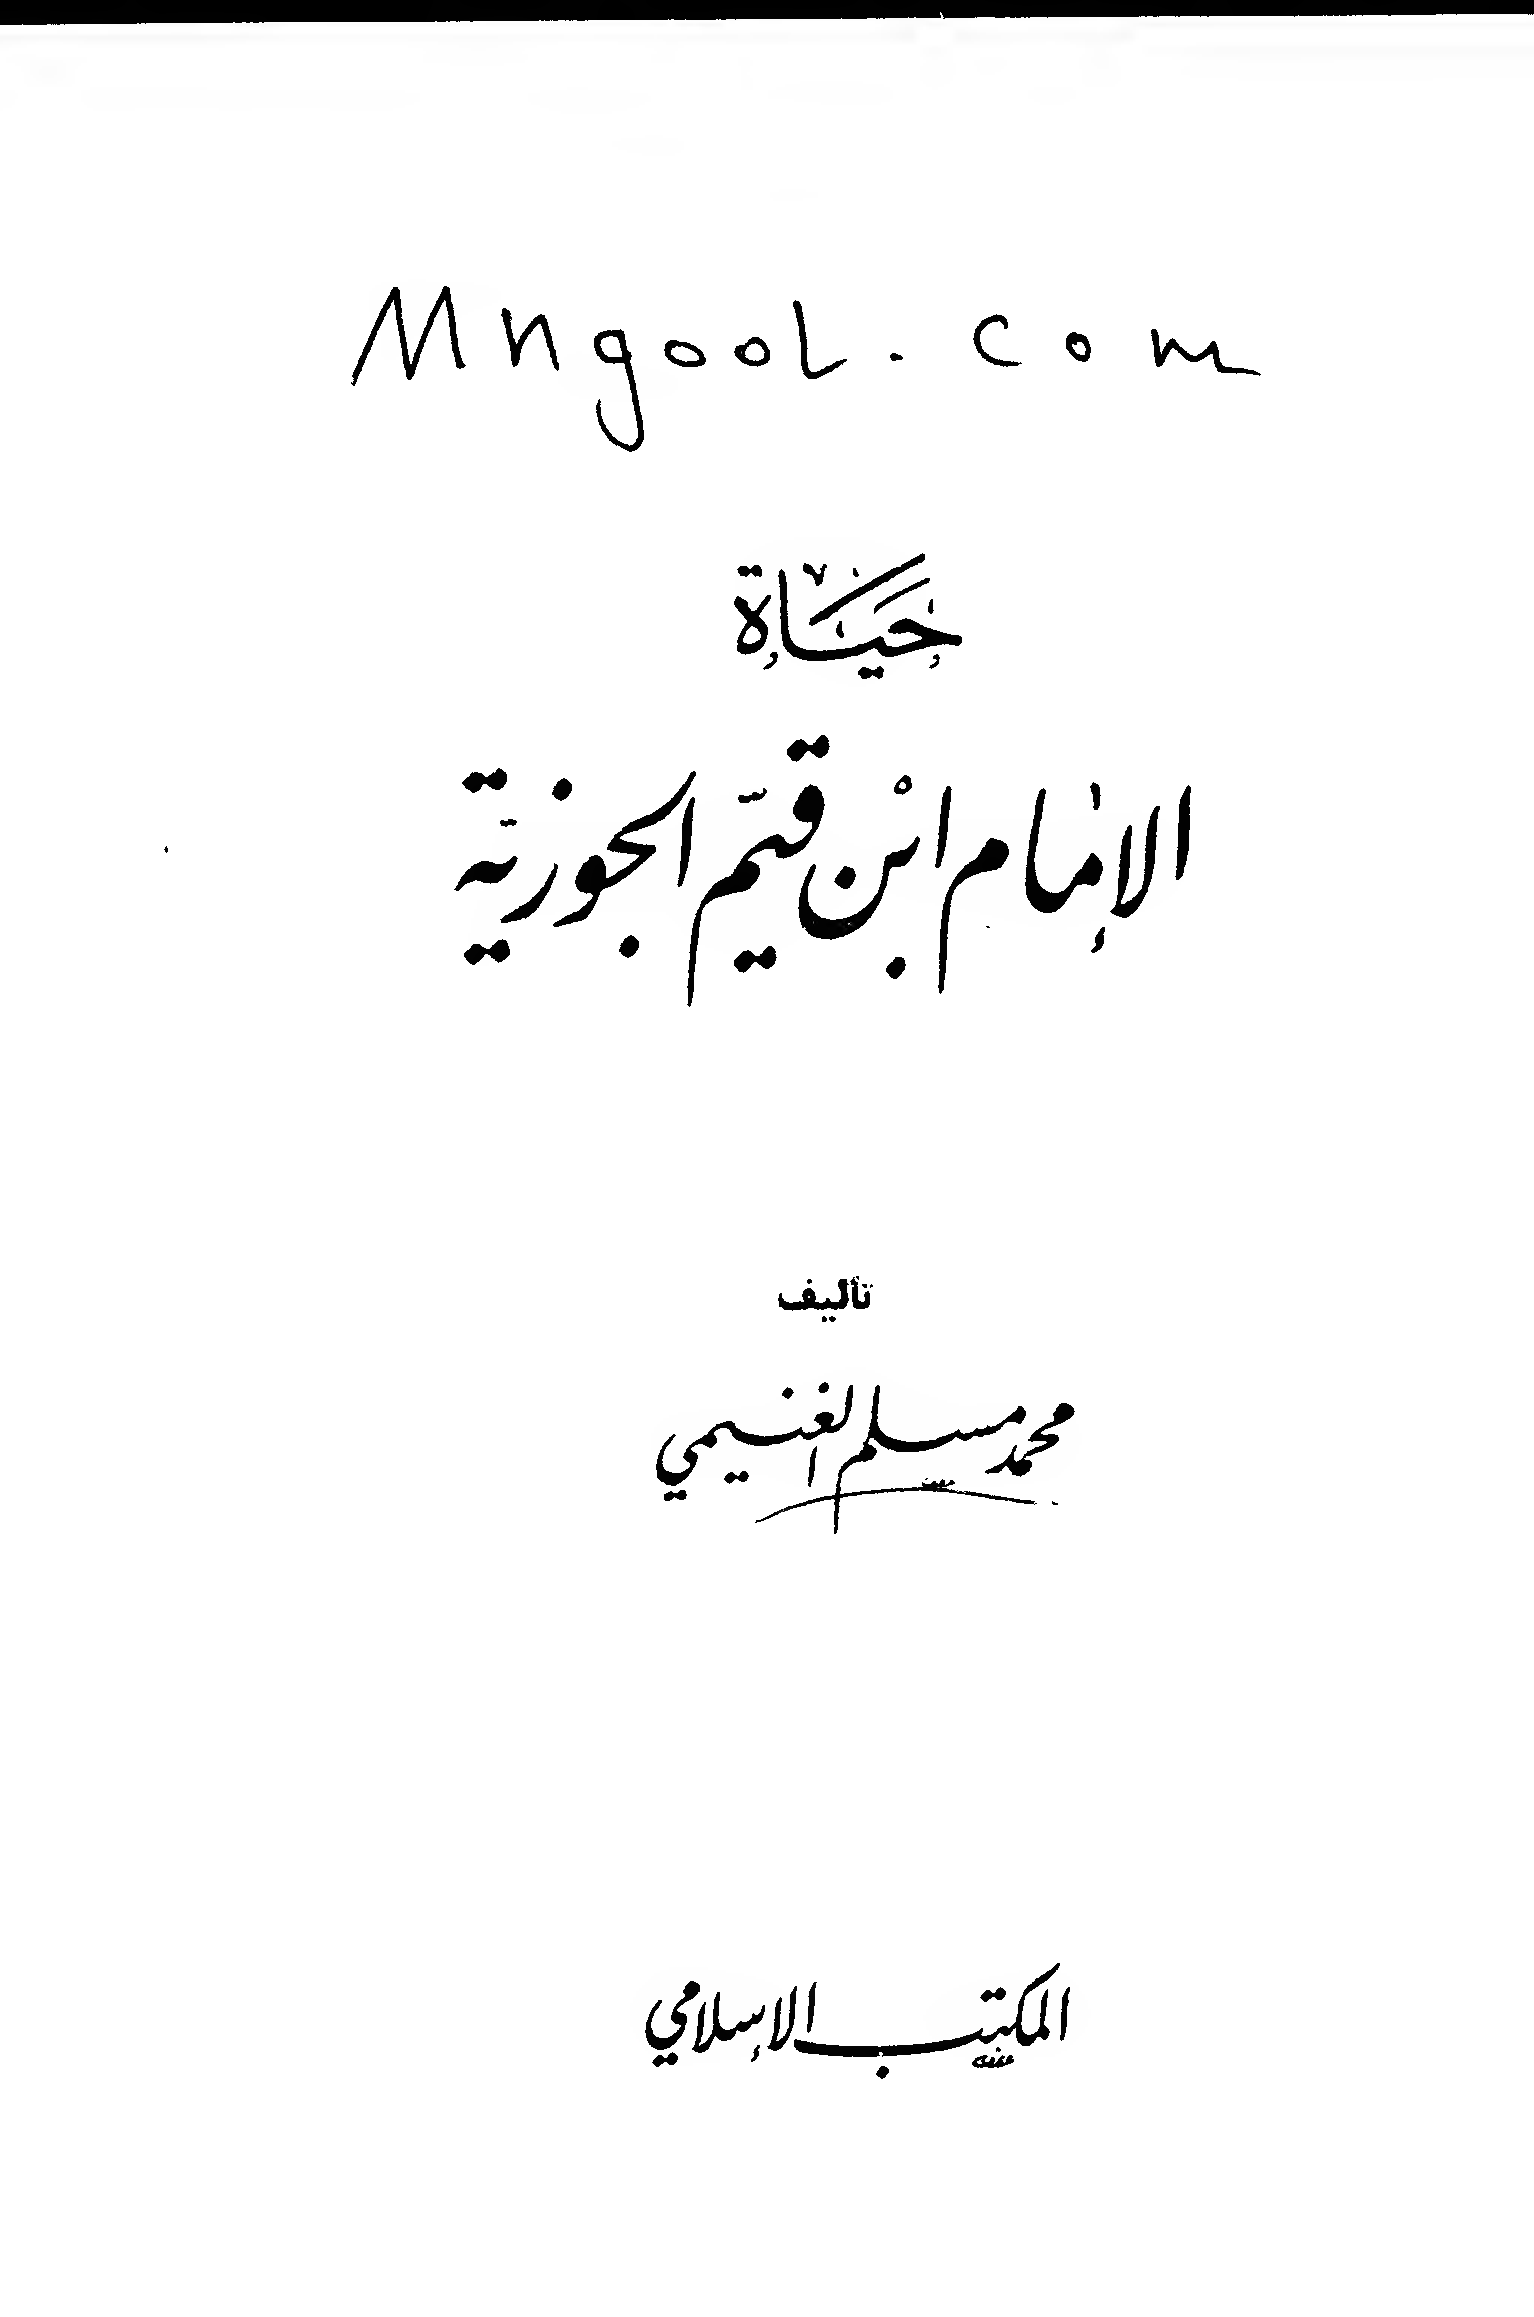 Mngool.com
حَيَاة
الإمام ابْن قيّم الجوزيّة
تأليف
محمد مسلم الغنيمي
المكتب الإسلامي